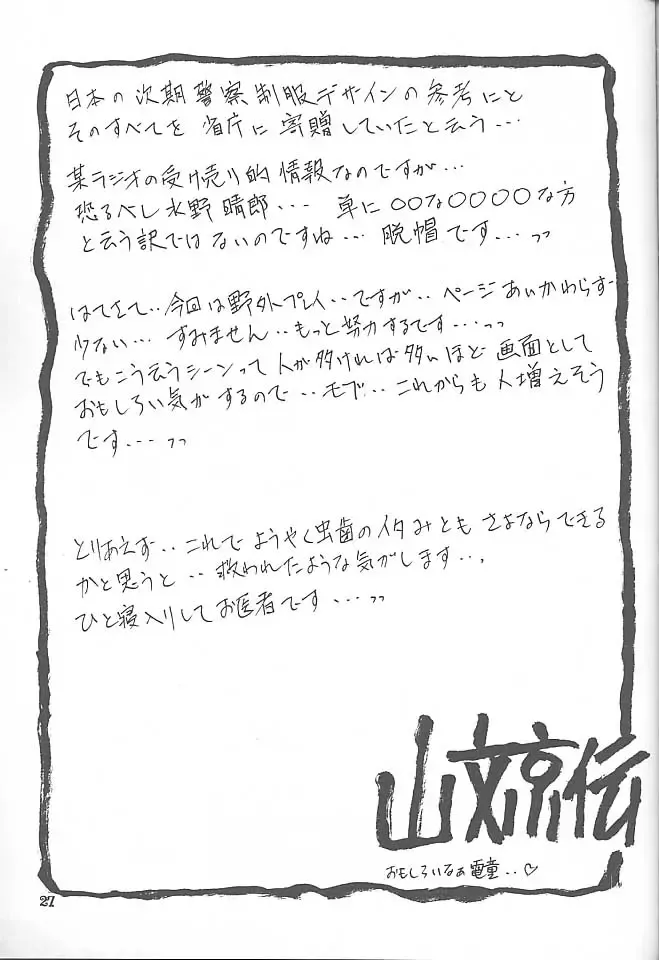 日本の次期警察制服デザインの参考にと
そのすべてを省庁に寄贈していたと云う…
某ラジオの受け売り的情報なのですが…
恐るべし水野晴郎… 単に○○な○○○○な方
と云う訳ではないのですね… 脱帽です…っっ
はてさて‥今回は野外プレイ‥ですが‥ページあいかわらず
少ない… すみません‥もっと努力するです…っっ
でもこう云うシーンって人が多ければ多いほど画面として
おもしろい気がするので‥モブ‥これからも人増えそう
です…っっ
とりあえず‥これでようやく虫歯のイタみともさよならできる
かと思うと‥救われたような気がします…っ
ひと寝入りしてお医者です…っっ
山文京伝
おもしろいなぁ電童‥♡
27